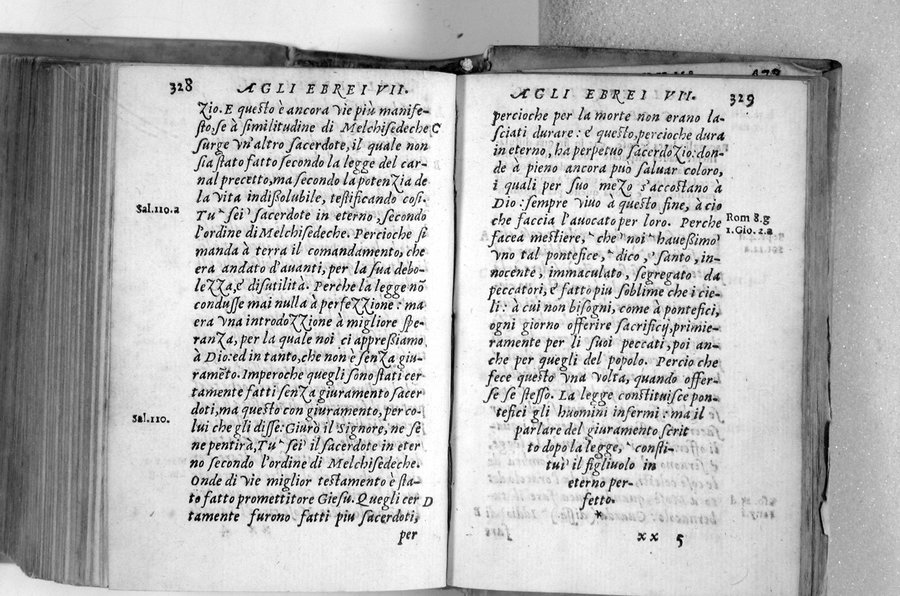 328
AGLI EBREI VII.
Zio. E questo è ancora vie più manife-
sto, se à similitudine di Melchisedeche
C
surge vn'altro sacerdote, il quale non
sia stato fatto secondo la legge del car-
nal precetto, ma secondo la potenZia de
la vita indissolubile, testificando cosi.
Sal.110.a
Tu sei sacerdote in eterno, secondo
l'ordine di Melchisedeche. Percioche si
manda à terra il comandamento, che
era andato d'auanti, per la sua debo-
leZZa, e disutilità. Perche la legge nõ
condusse mai nulla à perfeZZione: ma
era vna introdoZZione à migliore spe-
ranZa, per la quale noi ci appressiamo
à Dio: ed in tanto, che non è senZa giu-
ramẽto. Imperoche quegli sono stati cer
tamente fatti senZa giuramento sacer
doti, ma questo con giuramento, per co-
Sal.110.
lui che gli disse: Giurò il Signore, ne se
ne pentirà, Tu sei il sacerdote in eter
no secondo l'ordine di Melchisedeche.
Onde di vie miglior testamento è sta-
to fatto promettitore Giesu. Quegli cer
D
tamente furono fatti piu sacerdoti,
per
AGLI EBREI VII.
329
percioche per la morte non erano la-
sciati durare: e questo, percioche dura
in eterno, ha perpetuo sacerdoZio: don-
de à pieno ancora può saluar coloro,
i quali per suo meZo s'accostano à
Dio: sempre viuo à questo fine, à cio
che faccia l'auocato per loro. Perche
Rom 8.g
1.Gio.2.a
facea mestiere, che noi hauessimo
vno tal pontefice, dico, santo, in-
nocente, immaculato, segregato da
peccatori, e fatto piu soblime che i cie-
li: à cui non bisogni, come à pontefici,
ogni giorno offerire sacrificij, primie-
ramente per li suoi peccati, poi an-
che per quegli del popolo. Percio che
fece questo vna volta, quando offer-
se se stesso. La legge constituisce pon-
tefici gli huomini infermi: ma il
parlare del giuramento scrit
to dopo la legge, consti-
tuì il figliuolo in
eterno per-
fetto.
*
xx 5